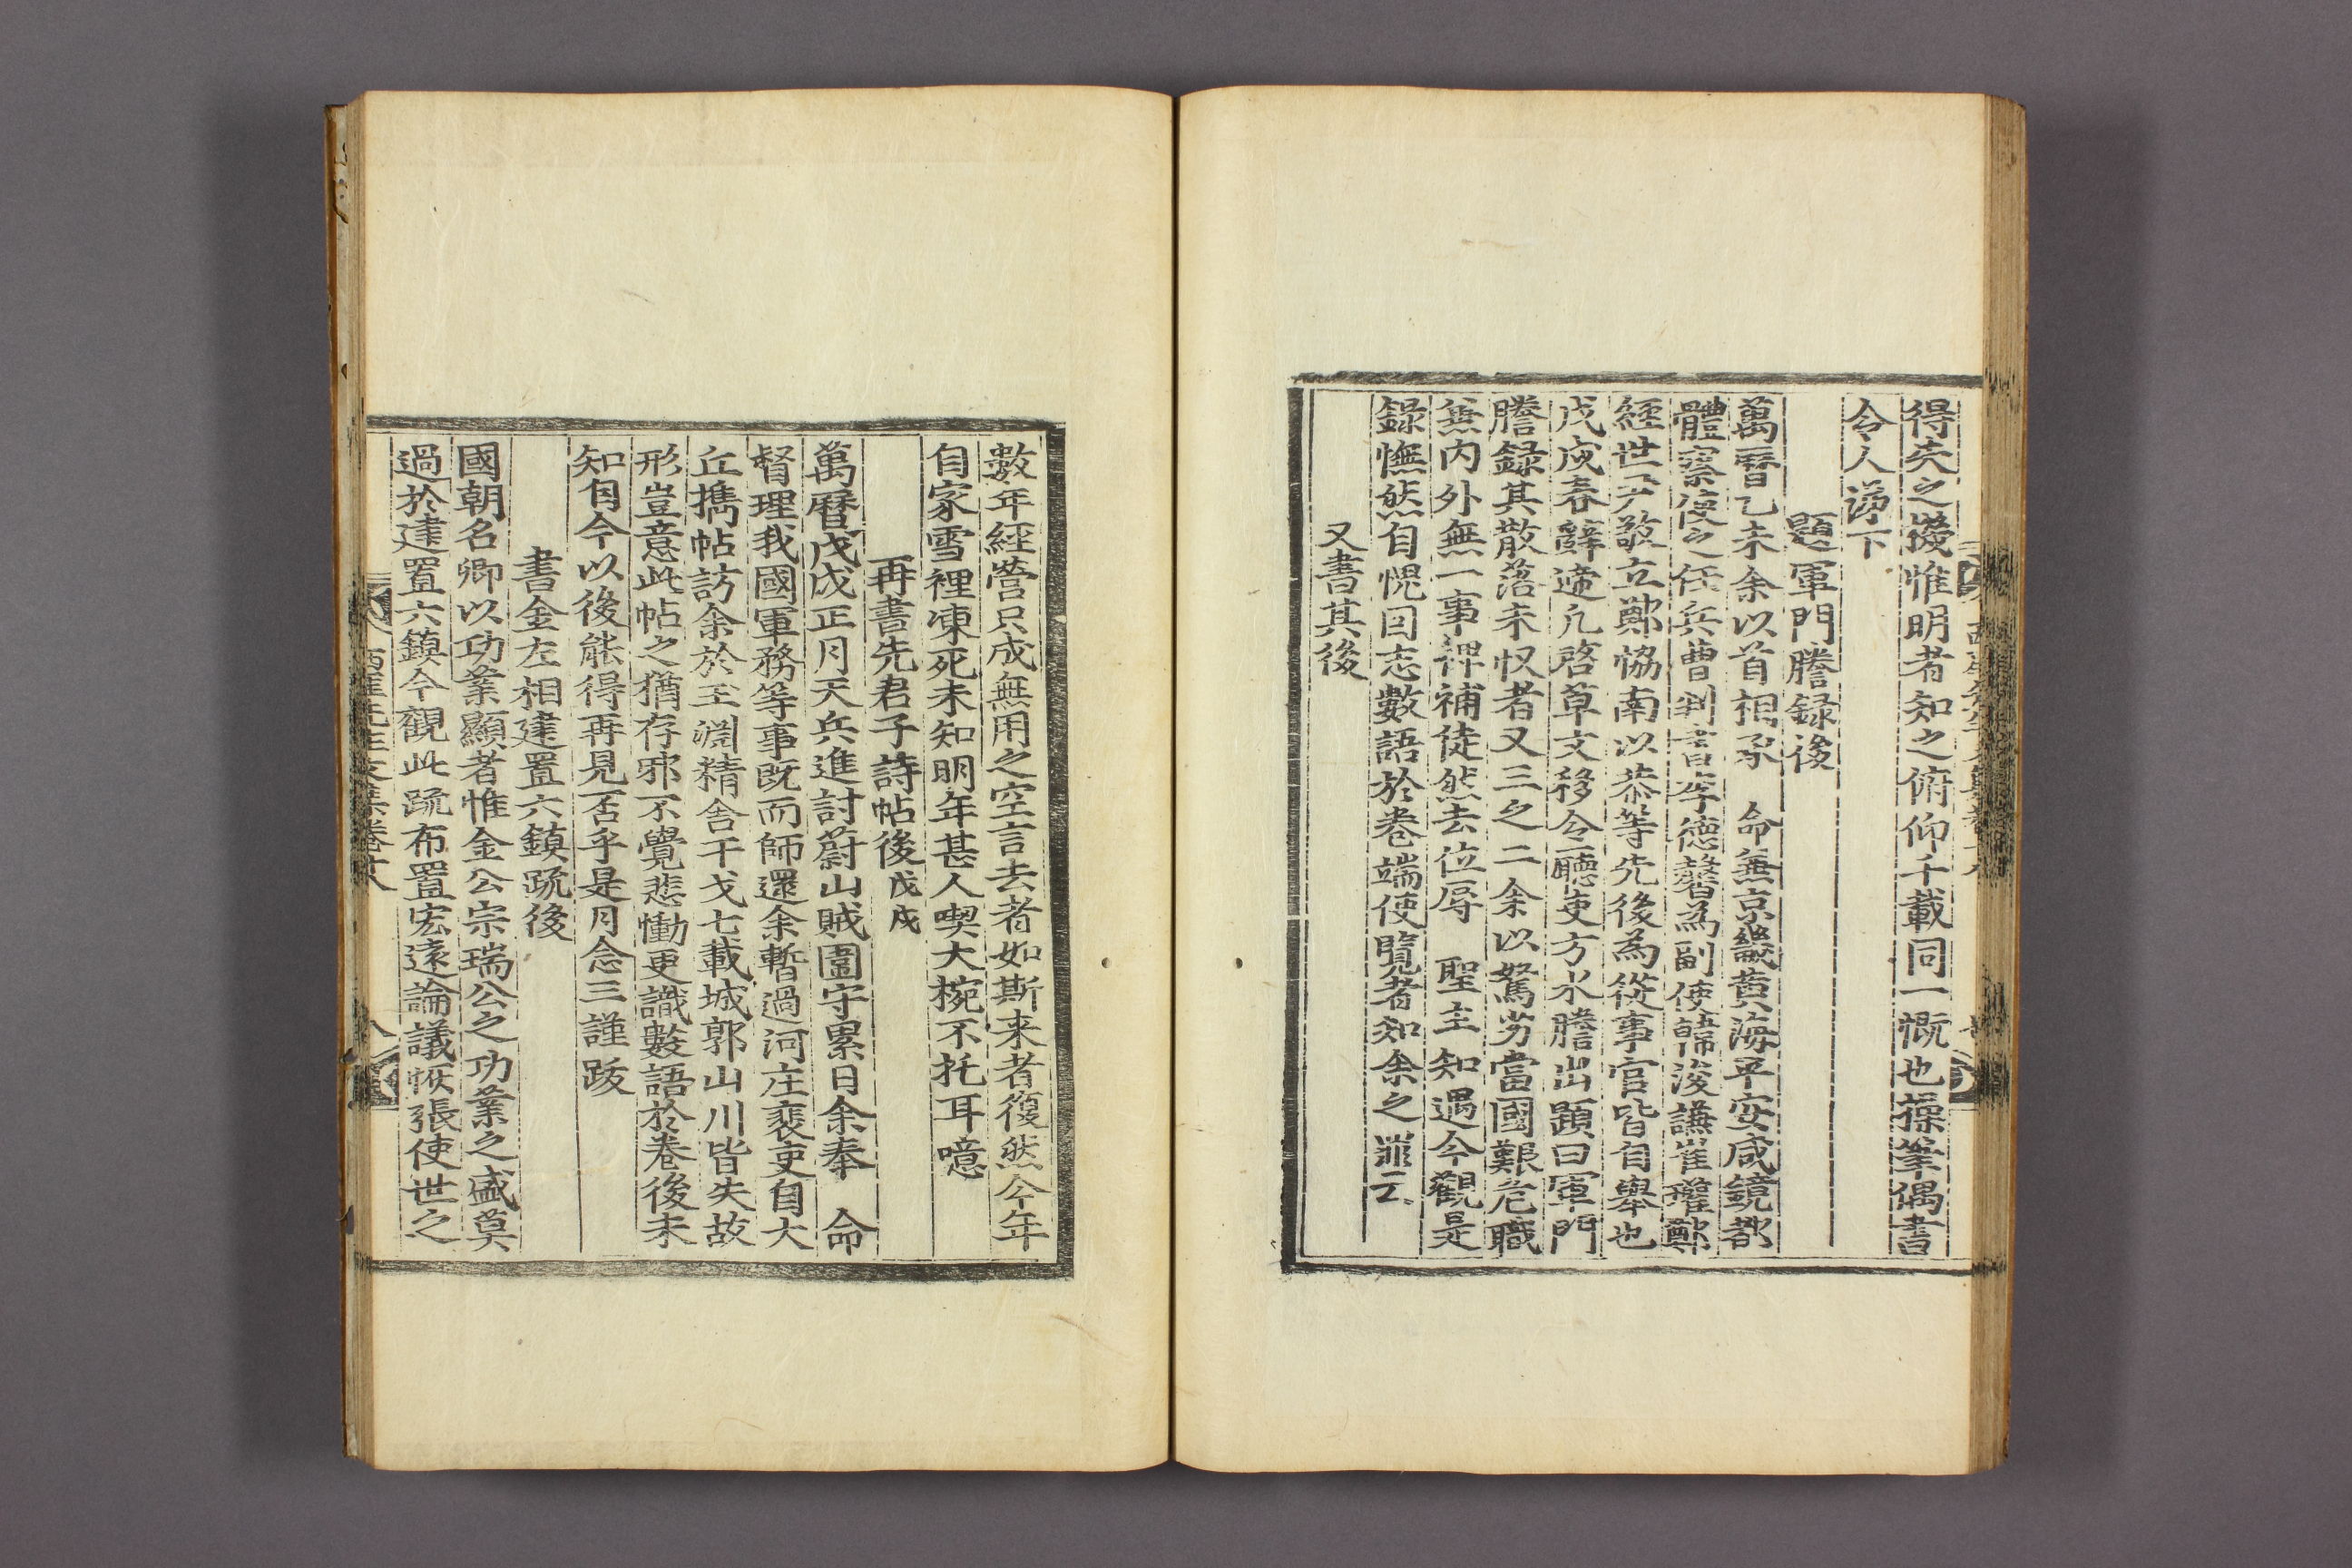 得失之機惟明者知之俯仰千載同一慨也操筆偶書
令人涕下
題軍門謄錄後
萬曆乙未余以首相承 命兼京畿黃海平安咸鏡都
體察使之任兵曹判書李德馨為副使韓浚謙崔瓘鄭
經世尹敬立鄭恊南以恭等先後為從事官皆自舉也
戊戌春辭遞凡啓草文移令聽吏方水謄出題曰軍門
謄錄其散落未収者又三之二余以駑劣當國艱危職
兼內外無一事裨補徒然去位辱 聖主知遇今觀是
錄憮然自愧因志數語於卷端使覽者知余之罪云
又書其後
數年經營只成無用之空言去者如斯来者復然今年
自家雪裡凍死未知明年甚人喫大椀不托耳噫
再書先君子詩帖後 戊戌
萬曆戊戌正月天兵進討蔚山賊圍守累日余奉 命
督理我國軍務等事既而師還余暫過河庄裵吏自大
丘擕帖訪余於玉淵精舍干戈七載城郭山川皆失故
形豈意此帖之猶存邪不覺悲慟更識數語於卷後未
知自今以後能得再見否乎是月念三謹跋
書金左相建置六鎮疏後
國朝名卿以功業顯者惟金公宗瑞公之功業之盛莫
過於建置六鎮今觀此疏布置宏遠論議恢張使世之
西厓先生文集卷十八